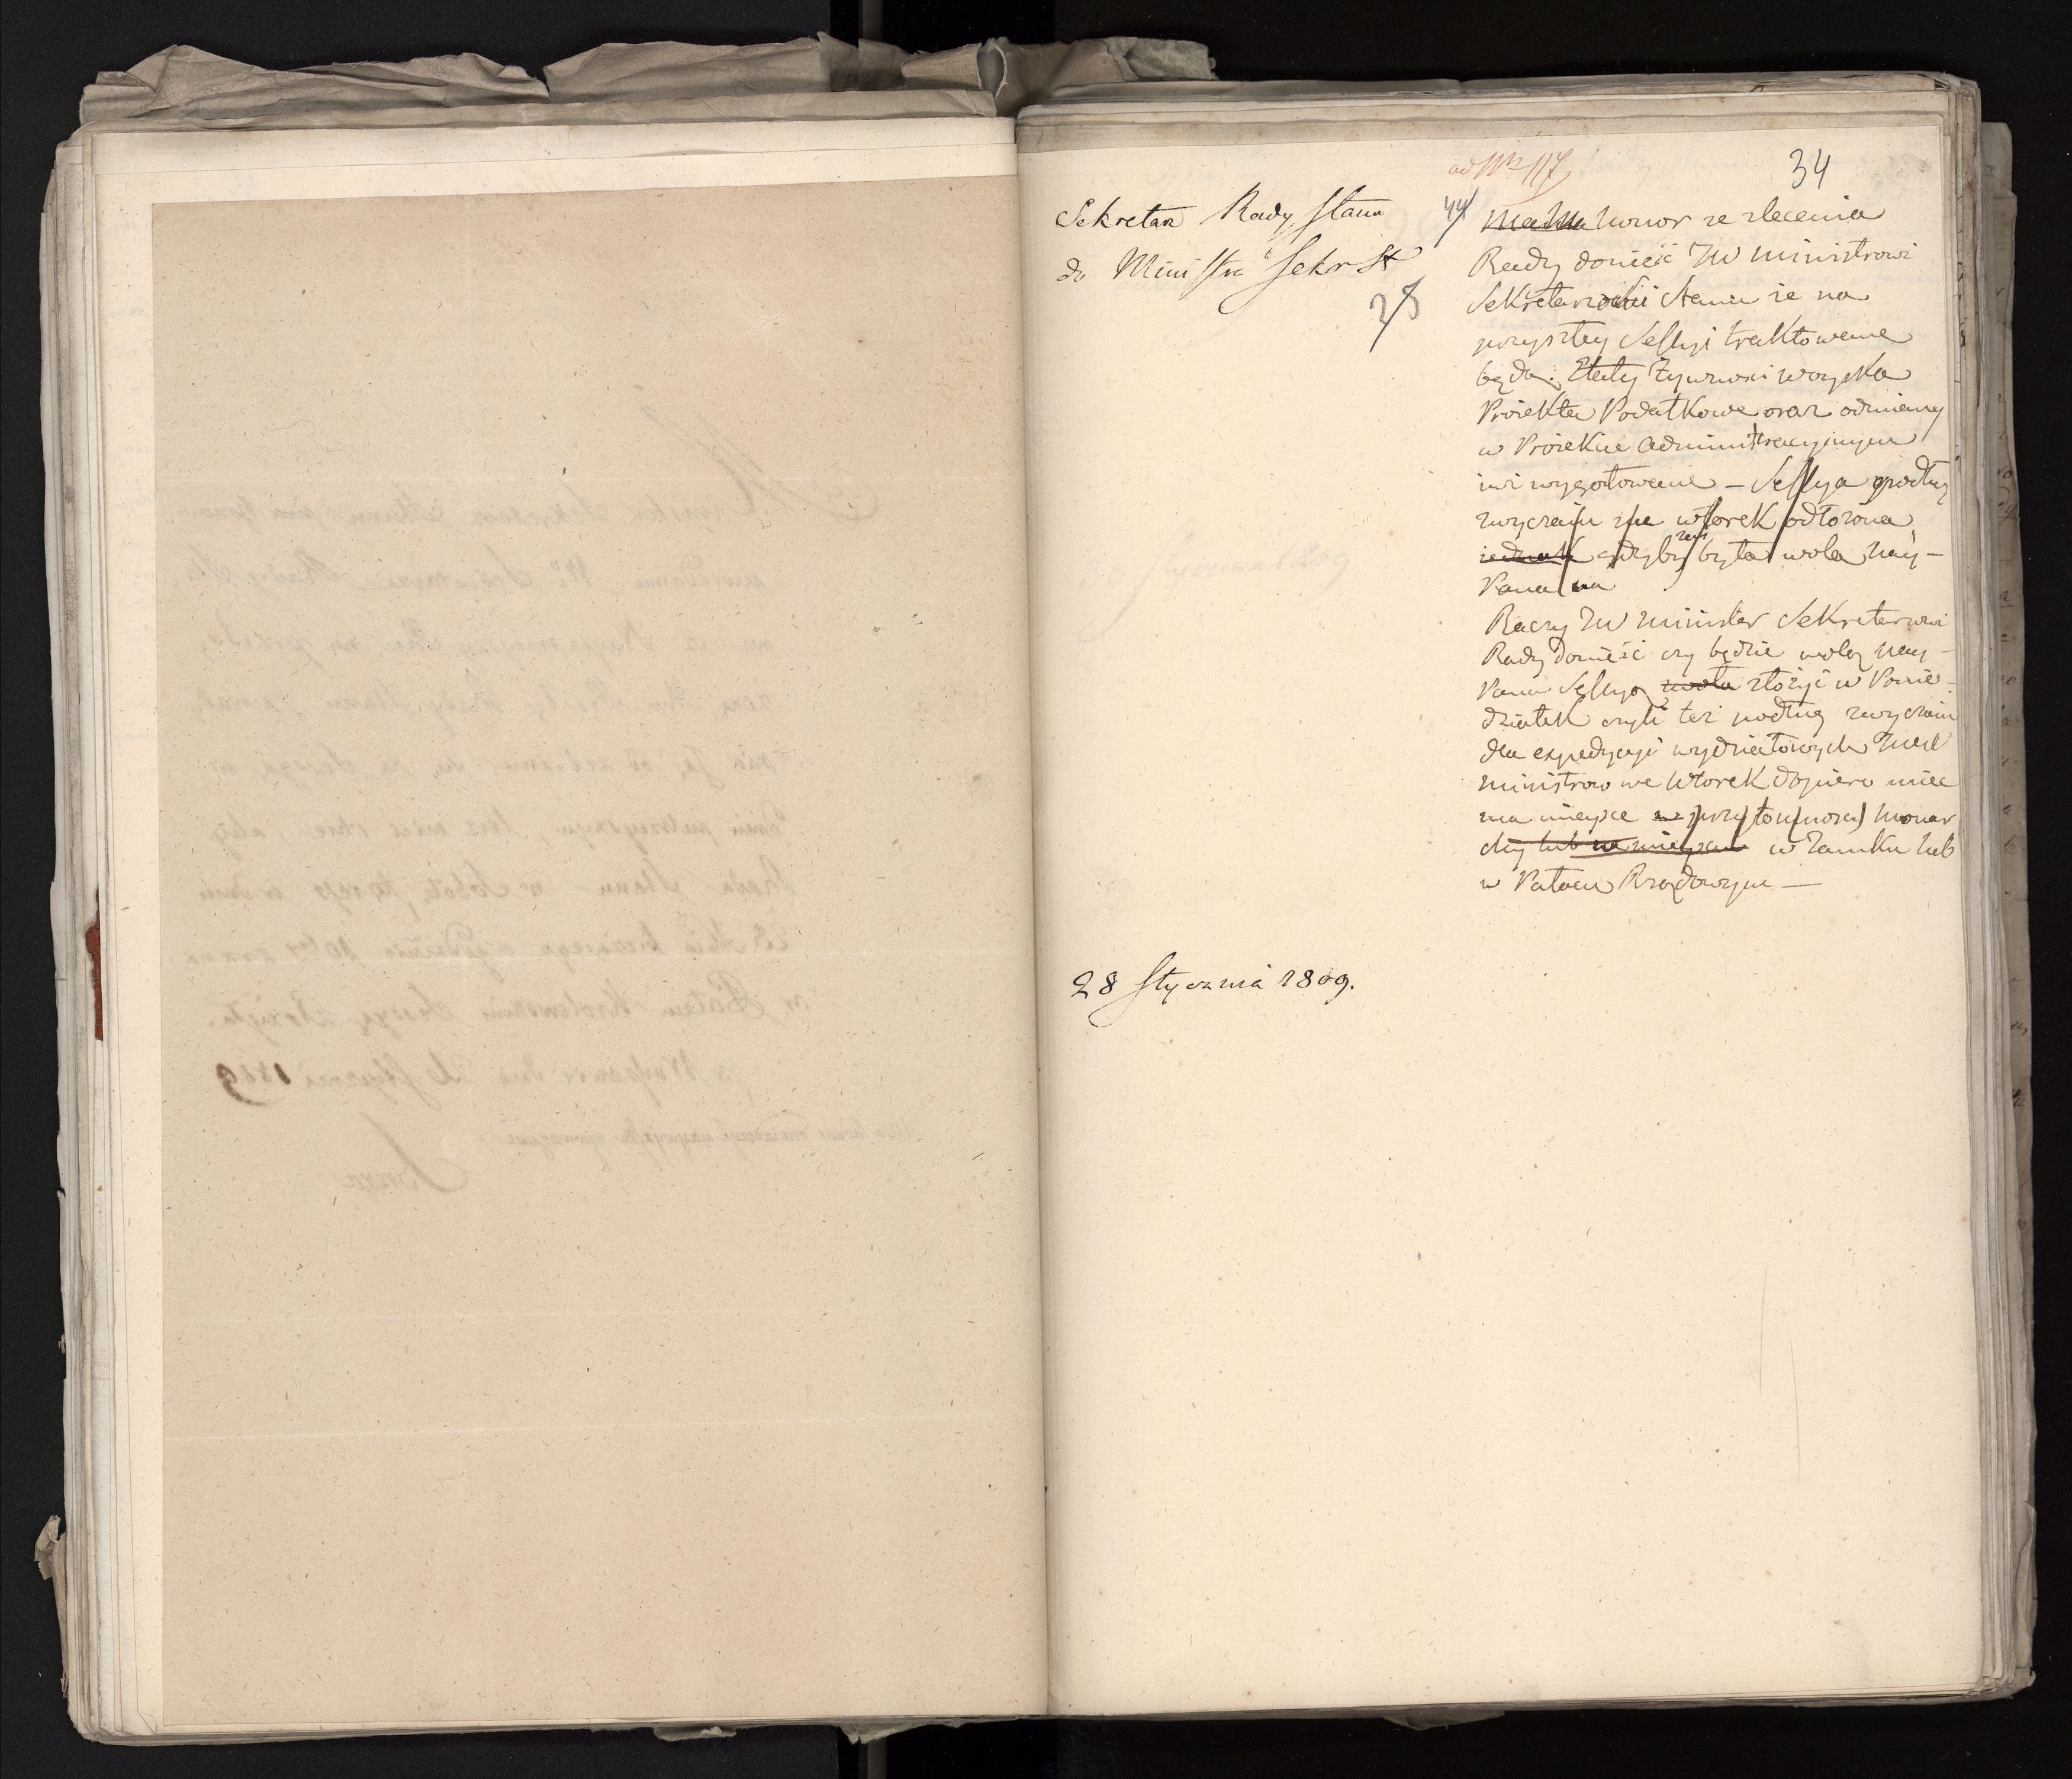 ad Nr 117
34
Sekretarz Rady Stanu
do Ministra Sekr St
44
28
Ma honor ze zlecenia
Rady donieść JW Ministrowi
Sekretarzowi Stanu że na
przyszłey Sessyi traktowane
będą: Etaty Żywności woyska
Proiekta Podatkowe oraz odmiany
w Proiekcie administracyinym
iuż wygotowane – Sessya podług
zwyczaiu na wtorek odłożona
iednak gdyby zaś była wola Nay-
Pana na
Raczy JW Minister Sekretarzowi
Rady donieść czy będzie wolą Nay-
Pana Sessyą wola złożyć w Ponie-
działek czyli też podług zwyczaiu
dla expedycyi wydziałowych JWch
Ministrow we Wtorek dopiero miec
ma mieysce w przytomnosci Monar
chy lub na mieyscu w Zamku lub
w Pałacu Rządowym —
28 Stycznia 1809.